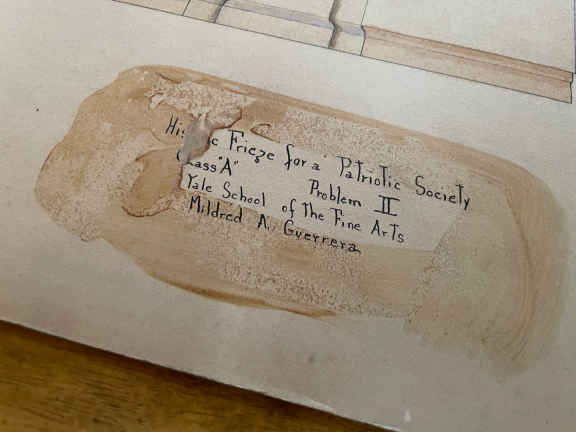 Frieze for a Patriotic Society
"A" Problem II
Yale School of the Fine Arts
Mildred A. Guerrera